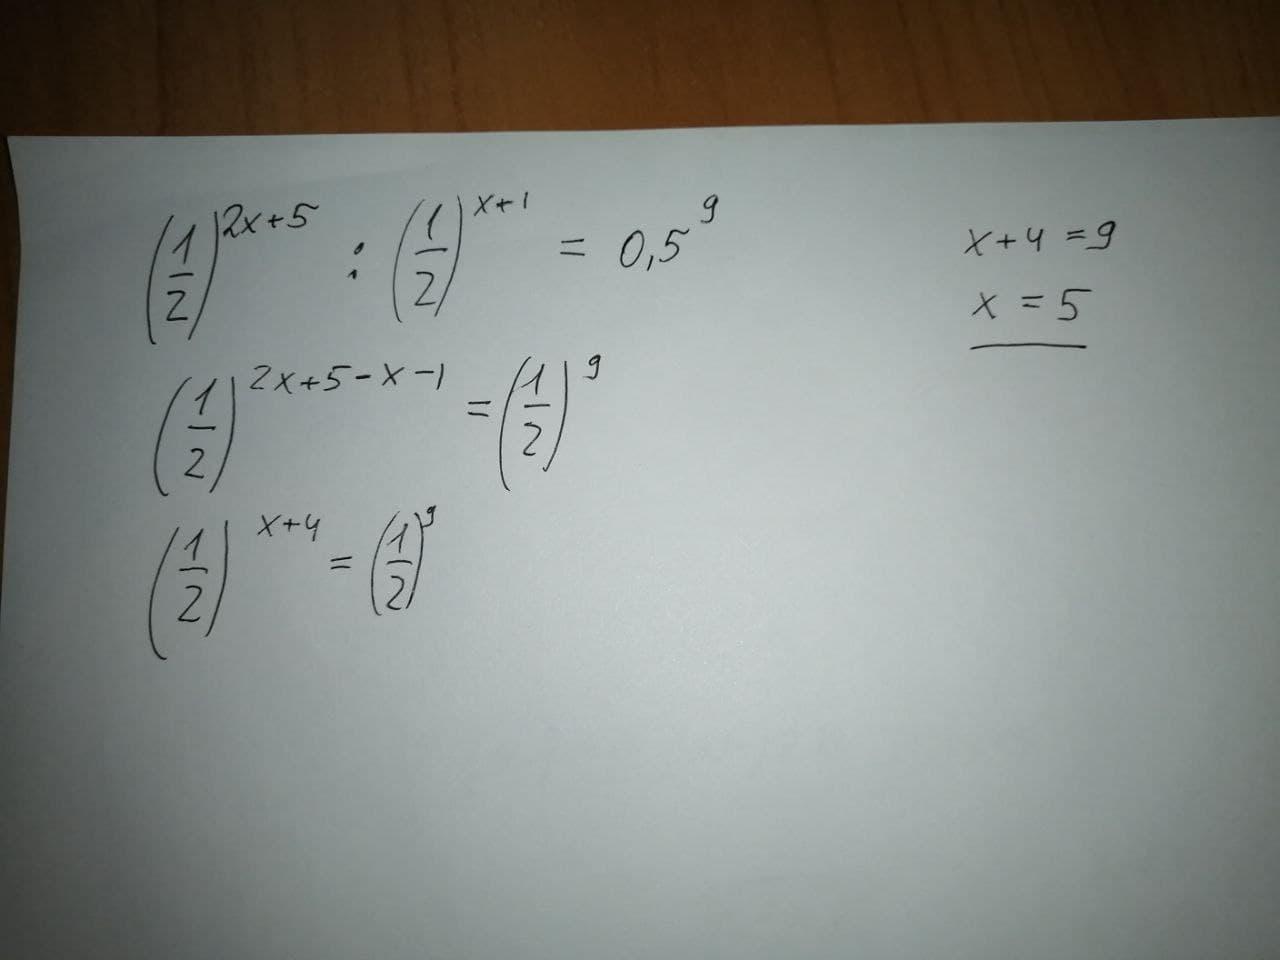 (1/2)^(2x+5) : (1/2)^(x+1) = 0,5^9
(1/2)^(2x+5-x-1) = (1/2)^9
(1/2)^(x+4) = (1/2)^9
x+4=9
x = 5